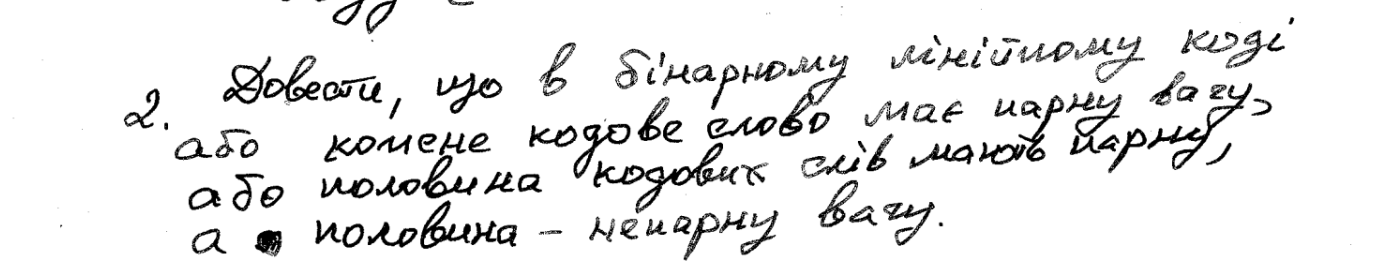 2. Довести, що в бінарному лінійному коді
або кожне кодове слово має парну вагу,
або половина кодових слів мають парну,
а половина – непарну вагу.